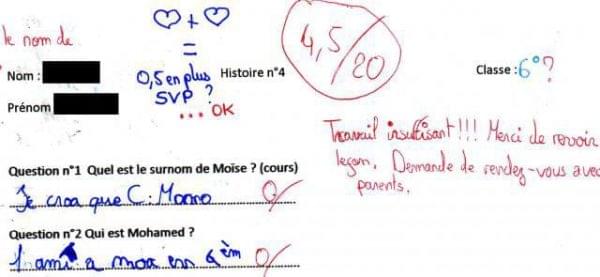 le nom de
♡ + ♡
=
0,5 en plus
SVP ?
... OK
4,5/20
Nom :
Prénom
Histoire n°4
Classe : 6° ?
Travail insuffisant !!! Merci de revoir
leçon. Demande de rendez-vous avec
parents.
Question n°1 Quel est le surnom de Moïse ? (cours)
Je croa que C : Momo 0/
Question n°2 Qui est Mohamed ?
1 ami a moa en 4èm 0/